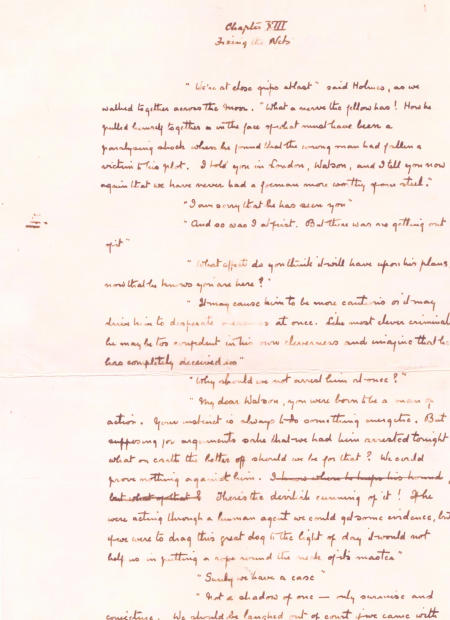 Chapter XIII
Fixing the Nets
"We're at close grips at last" said Holmes, as we
walked together across the Moor. "What a nerve the fellow has! How he
pulled himself together in the face of what must have been a
paralysing shock when he found that the wrong man had fallen a
victim to his plot. I told you in London, Watson, and I tell you now
again that we have never had a foeman more worthy of our steel."
"I am sorry that he has seen you"
"And so was I at first. But there was no getting out
of it"
"What effect do you think it will have upon his plans,
now that he knows you are here?"
"It may cause him to be more cautious or it may
drive him to desperate measures at once. Like most clever criminals
he may be too confident in his own cleverness and imagine that he
has completely deceived us"
"Why should we not arrest him at once?"
"My dear Watson, you were born to be a man of
action. Your instinct is always to do something energetic. But
supposing for arguments sake that we had him arrested tonight
what on earth the better off should we be for that? We could
prove nothing against him. I know where he keeps his hound,
but what of that? There's the devilish cunning of it! If he
were acting through a human agent we could get some evidence, but
if we were to drag this great dog to the light of day it would not
help us in putting a rope round the neck of its master"
"Surely we have a case"
"Not a shadow of one — only surmise and
conjecture. We should be laughed out of court if we came with